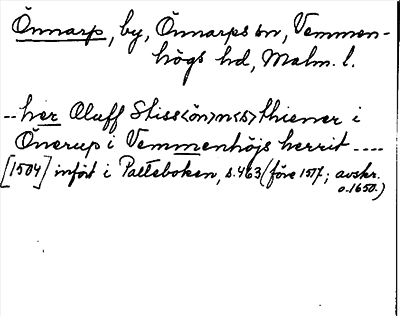 Önnarp, by, Önnarps sn, Vemmen-
högs hd, Malm. l.
..her Oluff Stiss<ön>n<s> thiener i
Önerup i Vemmenhöjs herrit ....
[1504] infört i Palteboken, s. 463 (före 1517; avskr.
o. 1650.)